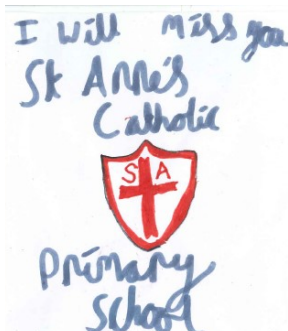 I will miss you
St Anne's
Catholic
S A
Primary
School